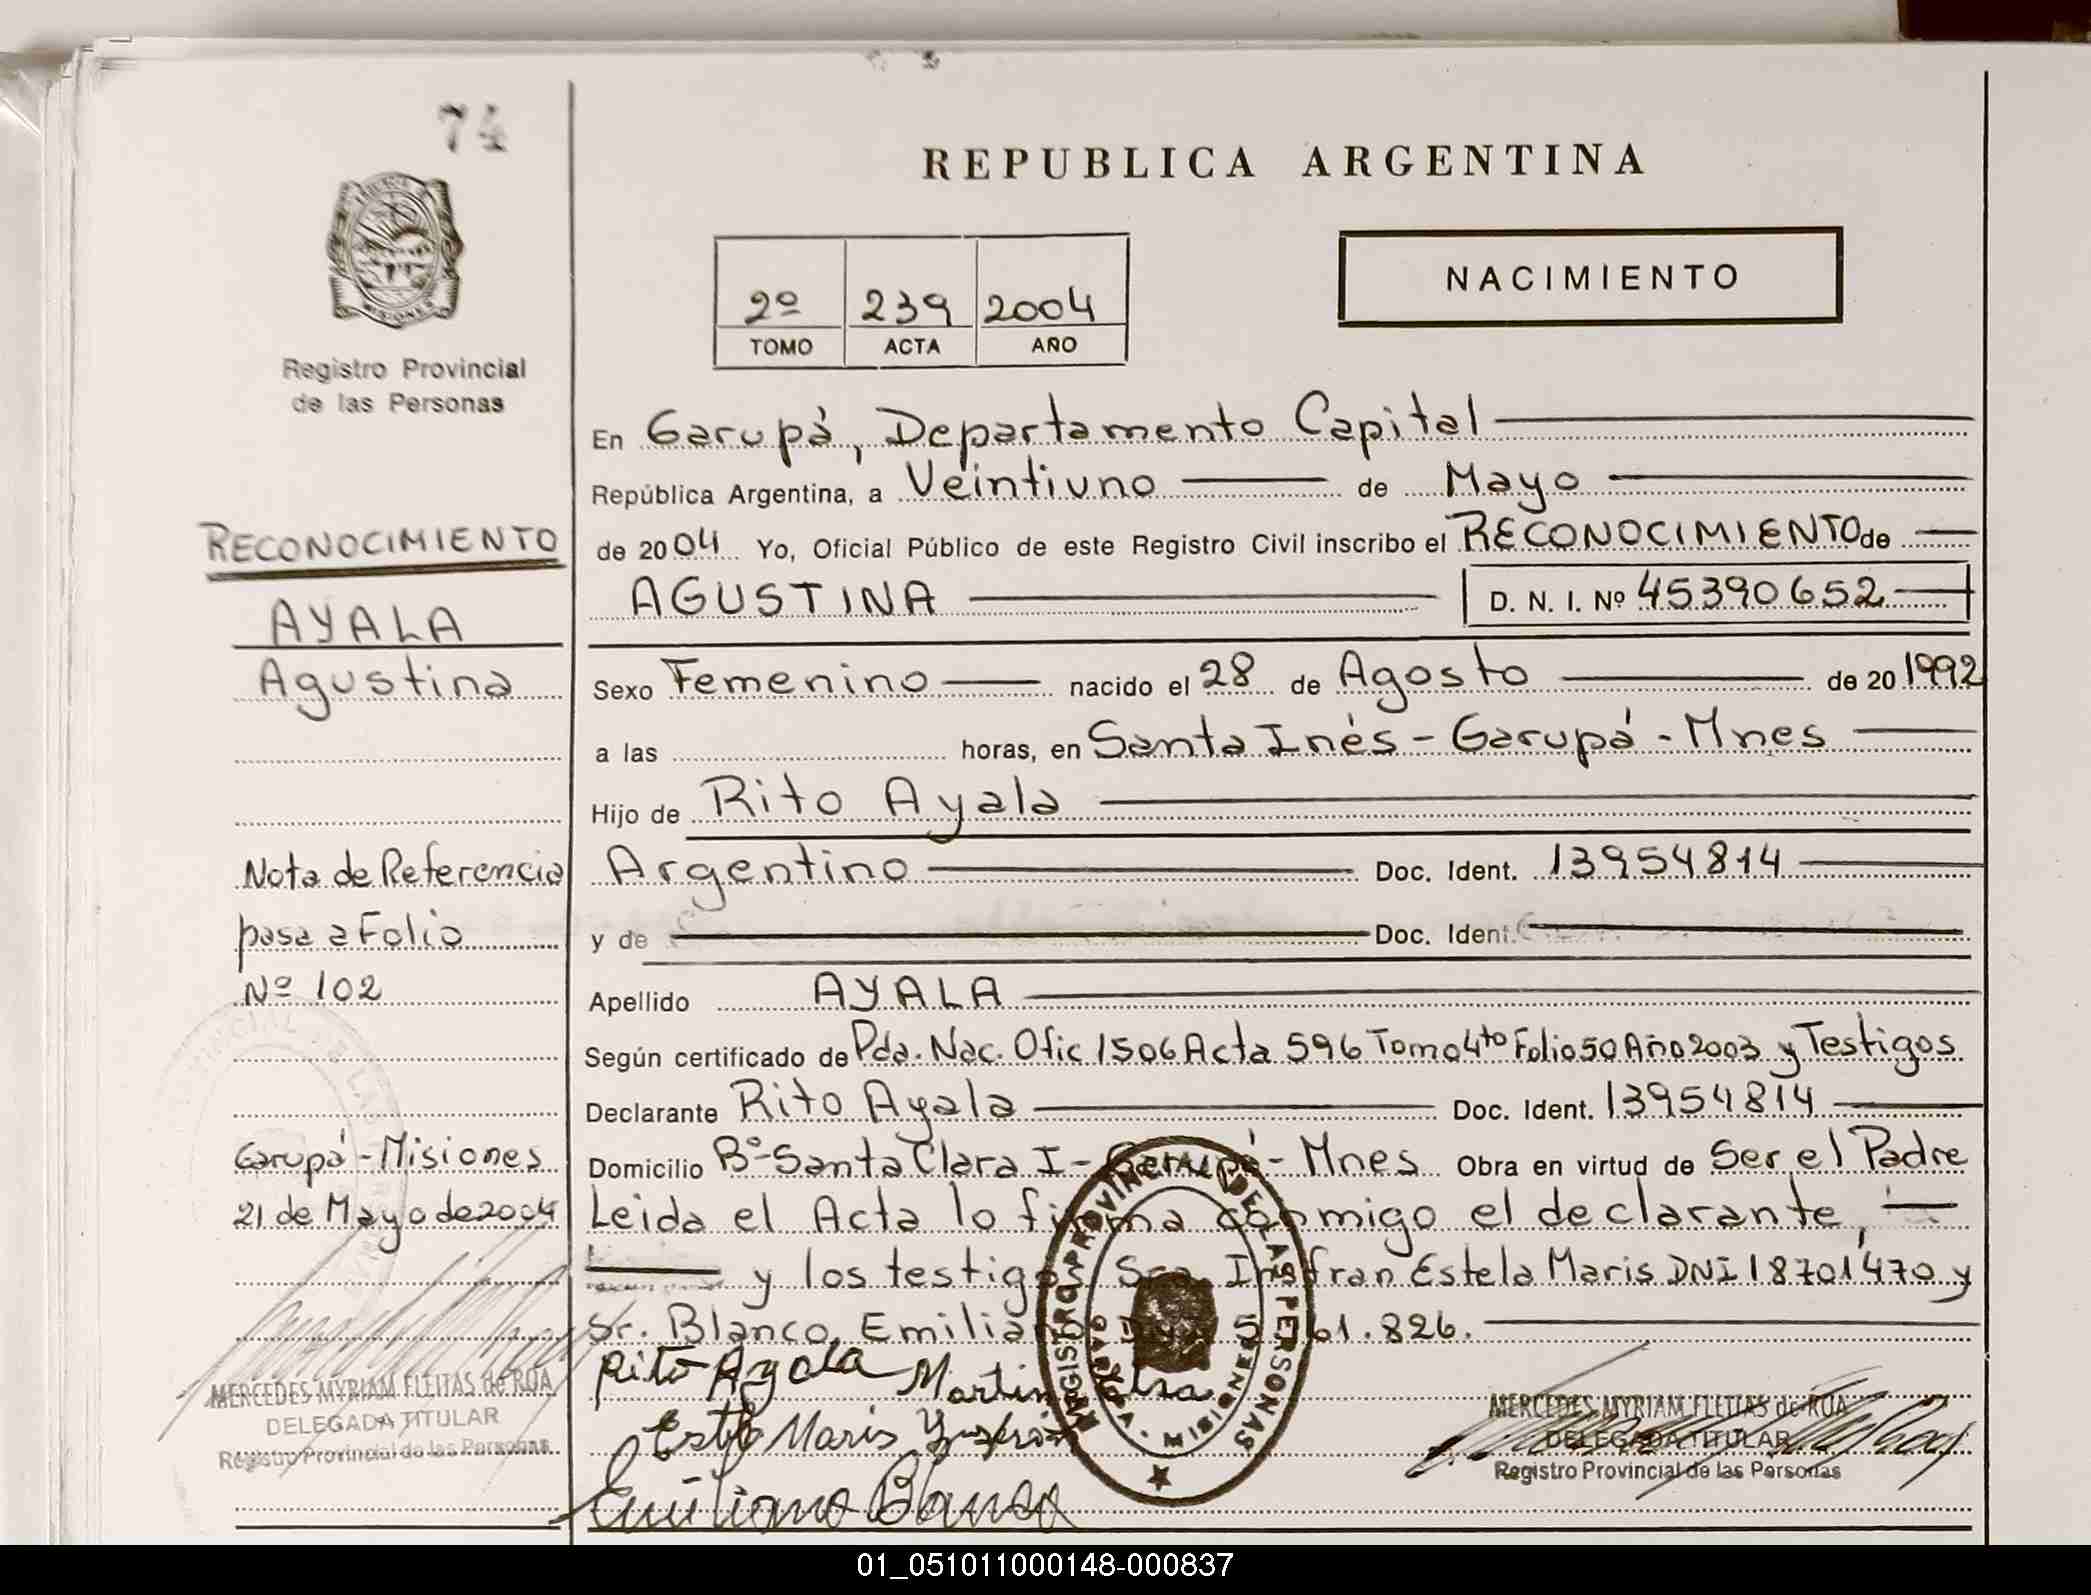 74
REPUBLICA ARGENTINA
NACIMIENTO
2º 239 2004
TOMO ACTA AÑO
MISIONES
Registro Provincial
de las Personas
RECONOCIMIENTO
AYALA
Agustina
Nota de Referencia
pasa a Folio
Nº 102
Garupá - Misiones
21 de Mayo de 2004
MERCEDES MYRIAM FLEITAS de ROA
DELEGADA TITULAR
Registro Provincial de las Personas
En Garupá, Departamento Capital
República Argentina, a Veintiuno de Mayo
de 2004 Yo, Oficial Público de este Registro Civil inscribo el RECONOCIMIENTO de
AGUSTINA D. N. I. Nº 45390652
Sexo Femenino nacido el 28 de Agosto de 20 1992
a las horas, en Santa Inés - Garupá - Mnes
Hijo de Rito Ayala
Argentino Doc. Ident. 13954814
y de Doc. Ident.
Apellido AYALA
Según certificado de Pda. Nac. Ofic 1506 Acta 596 Tomo 4to Folio 50 Año 2003 y Testigos
Declarante Rito Ayala Doc. Ident. 13954814
Domicilio Bº Santa Clara I - Garupá - Mnes Obra en virtud de Ser el Padre
Leida el Acta lo firma conmigo el declarante,
y los testigos Sra. Insfran Estela Maris DNI 18701470 y
Sr. Blanco, Emiliano 61.826.
Rito Ayala
Emiliano Blanco
REGISTRO PROVINCIAL DE LAS PERSONAS
GARUPA - MISIONES
MERCEDES MYRIAM FLEITAS de ROA
DELEGADA TITULAR
Registro Provincial de las Personas
01_051011000148-000837